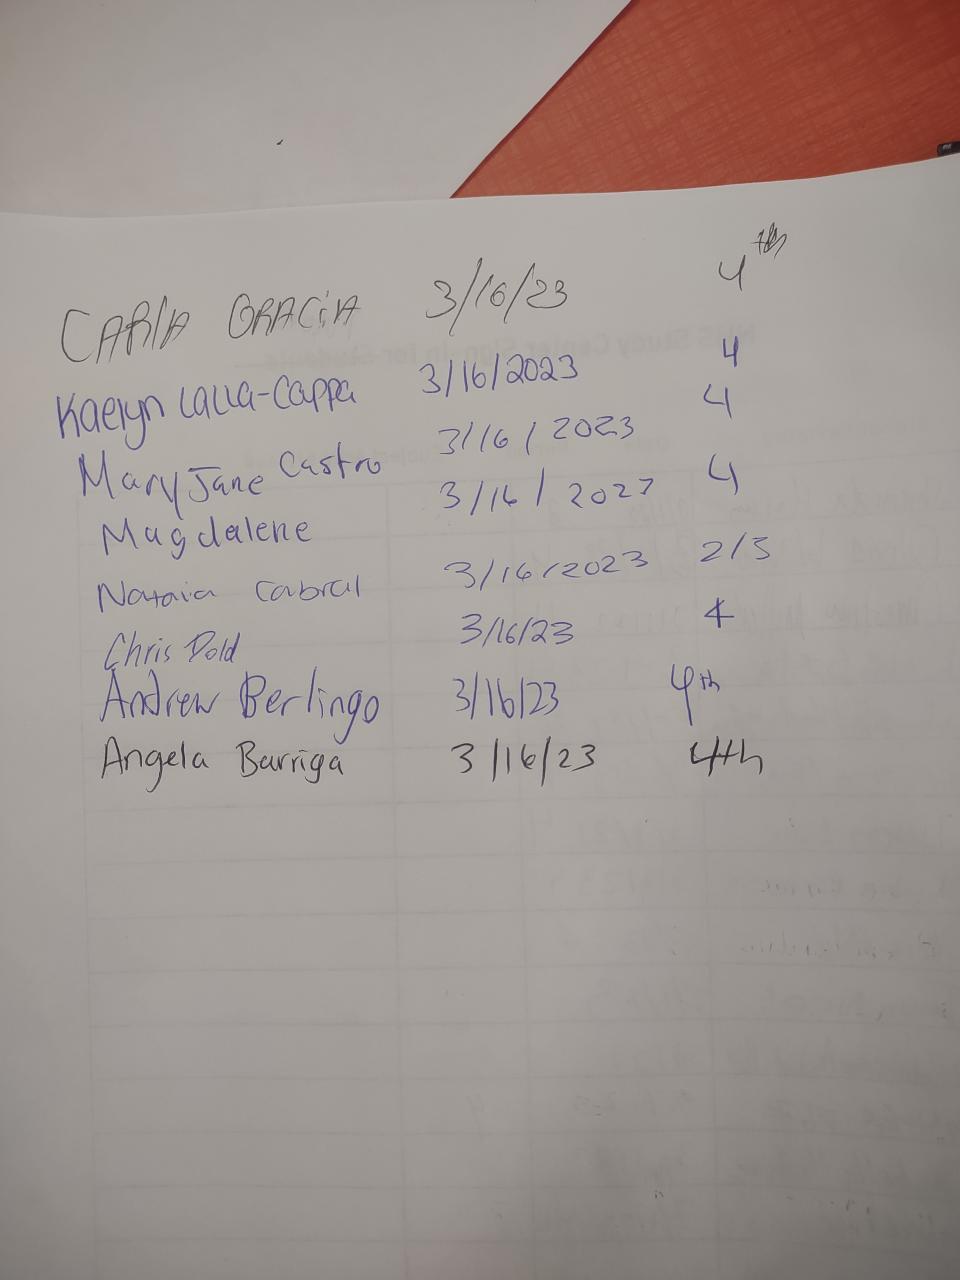 CARlA GRACiA 3/16/23 4th
Kaelyn LaLLa-Cappa 3/16/2023 4
Mary Jane Castro 3/16/2023 4
Magdalene 3/16/2027 4
Nataia Cabral 3/16/2023 2/3
Chris Dold 3/16/23 4
Andrew Berlingo 3/16/23 4th
Angela Barriga 3/16/23 4th